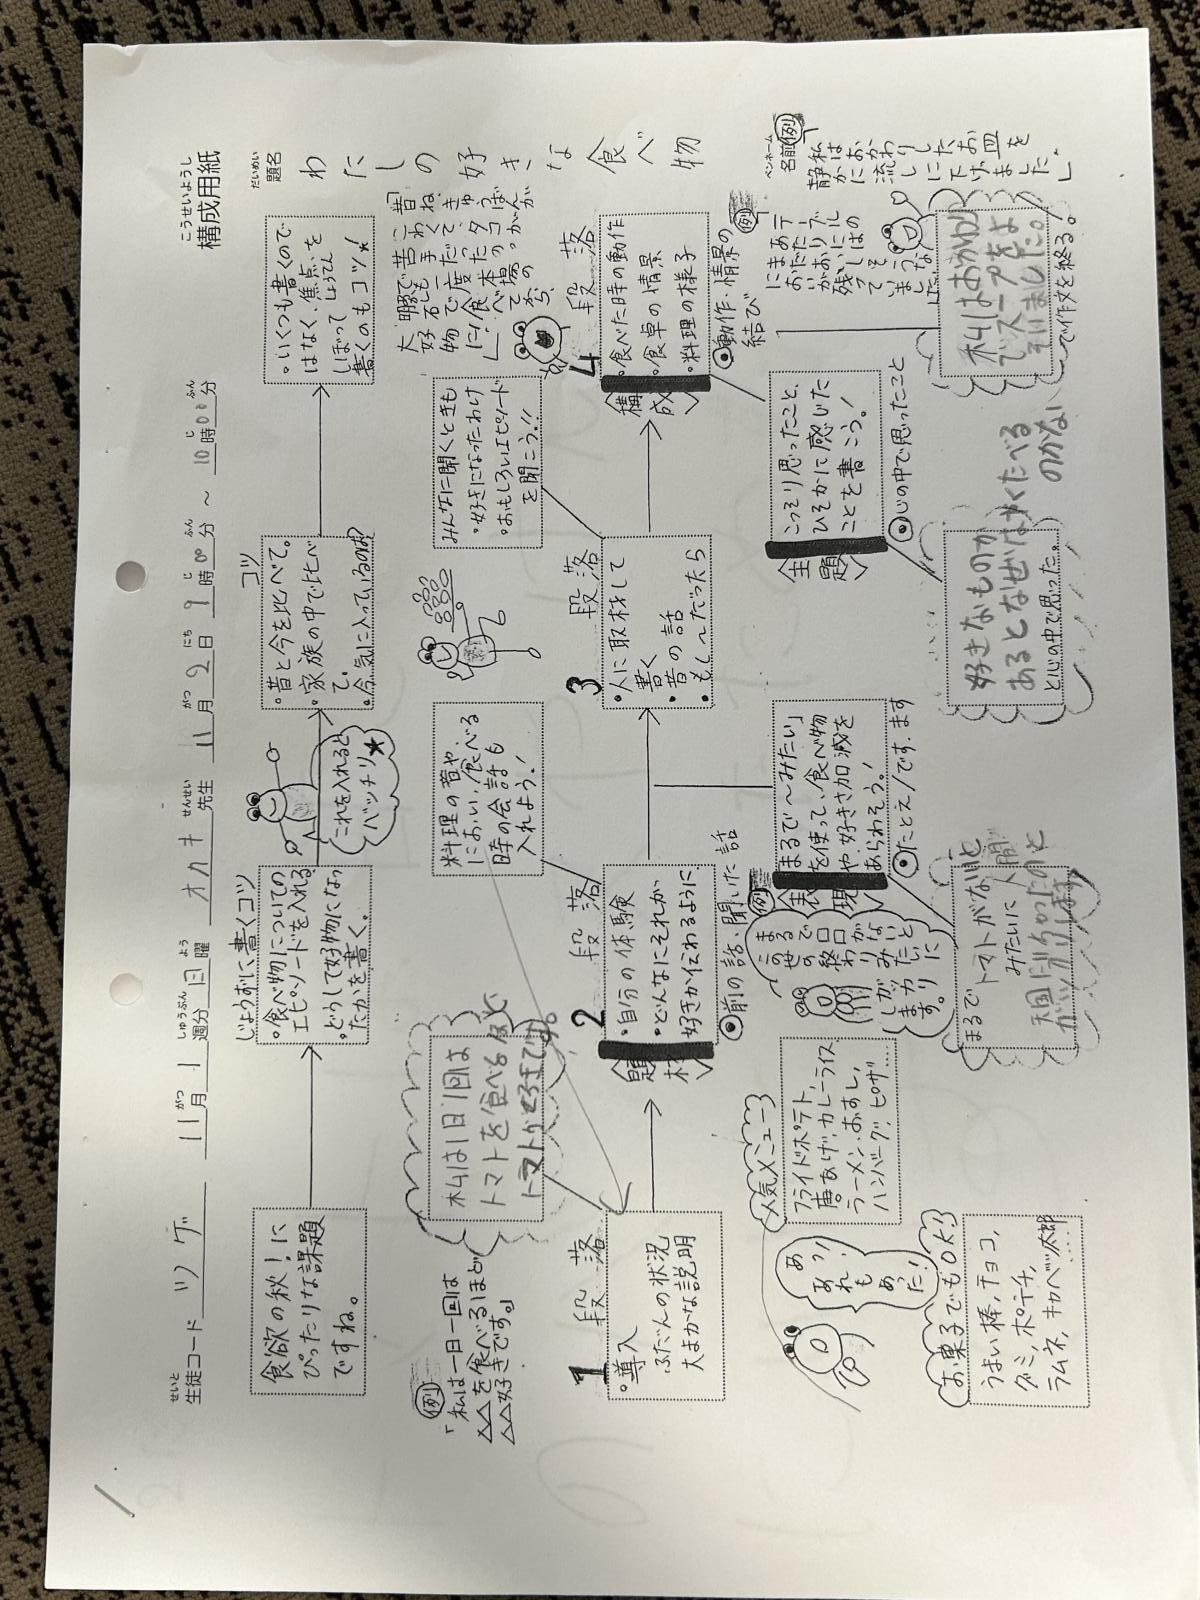 こうせいようし
構成用紙
だいめい
題名
わたしの好きな食べ物
ペンネーム
名前
せいと
生徒コード ツゲ
11月1週分日曜
オカキ先生
11月2日9時00分～10時00分
食欲の秋！に
ぴったりな課題
ですね。
じょうずに書くコツ
・食べ物についての
エピソードを入れる
・どうして好物になっ
たかを書く。
これを入れると
バッチリ★
コツ
・昔と今を比べて。
・家族の中で比べ
て。
・今、気に入っているのは?
・いくつも書くので
はなく、焦点を
しょうてん
しぼって
書くのもコツ!
例
「私は一日一回は
△△を食べるほど
△△好きです。」
私は1日1回は
トマトを食べるほど
トマトが好きです。
料理の音や、
におい、食べる
時の会話も
入れよう！
みんなに聞くときも
・好きになったわけ
・おもしろいエピソード
を聞こう!!
1段落
・導入
ふだんの状況
大まかな説明
2段落
題材
・自分の体験
・どんなにそれが
好きか伝わるように
◉前の話、聞いた話
3段落
・人に取材して
書く
・昔の話
・もし～だったら
4段落
構成
・食べた時の動作
・食卓の情景
・料理の様子
◉動作・情景の
結び
人気メニュー
フライドポテト、
唐あげ、カレーライス
ラーメン、おすし、
ハンバーグ、ピザ…
あっ!
あれも
あった!
お菓子でもOK!
うまい棒、チョコ、
グミ、ポテチ、
ラムネ、キャベツ太郎
……
表現
まるで～みたい」
を使って、食べ物
や、好きさ加減を
あらわそう！
◉たとえ/です、ます
例
まるで
この世の
終わり
みたいに
ガッカリ
します。
まるで
トマトがないと
みたいに
ガッカリします
主題
こっそり思ったこと、
ひそかに感じた
ことを書こう！
◉心の中で思ったこと
好きなものが
あるとなぜはやくたべる
のかな
と心の中で思った。
例
私はおかわりし
に、お皿を
静かに流しに
下げました。
私はおかわり
でスープをよ
そいました。
で作文を終る！